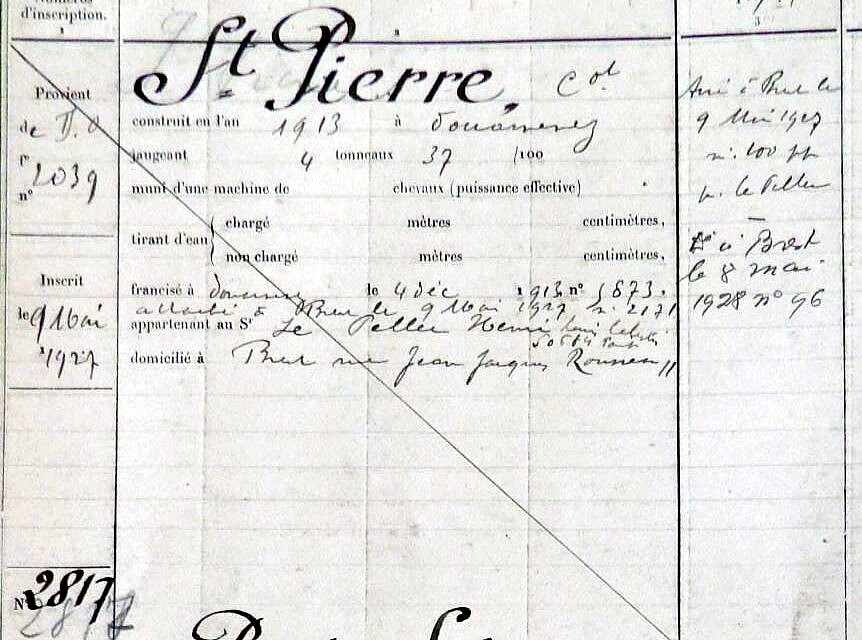 Numéros
d'inscription.
1
2
3
St Pierre, Cot
Provient
de D.d
f°
n° 2039
construit en l'an 1913 à Douarnenez
jaugeant 4 tonneaux 37 /100
muni d'une machine de chevaux (puissance effective)
tirant d'eau
chargé mètres centimètres,
non chargé mètres centimètres,
Inscrit
le 9 Mai
1927
francisé à Douarnenez le 4 déc 1913 n° 1873.
attaché à Brest le 9 Mai 1927 n. 2171
appartenant au Sr Le Pellec Henri
domicilié à Brest rue Jean Jacques Rousseau 11
Arrivé à Brest le
9 Mai 1927
n. 100 pp
p. Le Pellec
à Brest
le 8 mai
1928 n° 96
N° 2817
2817